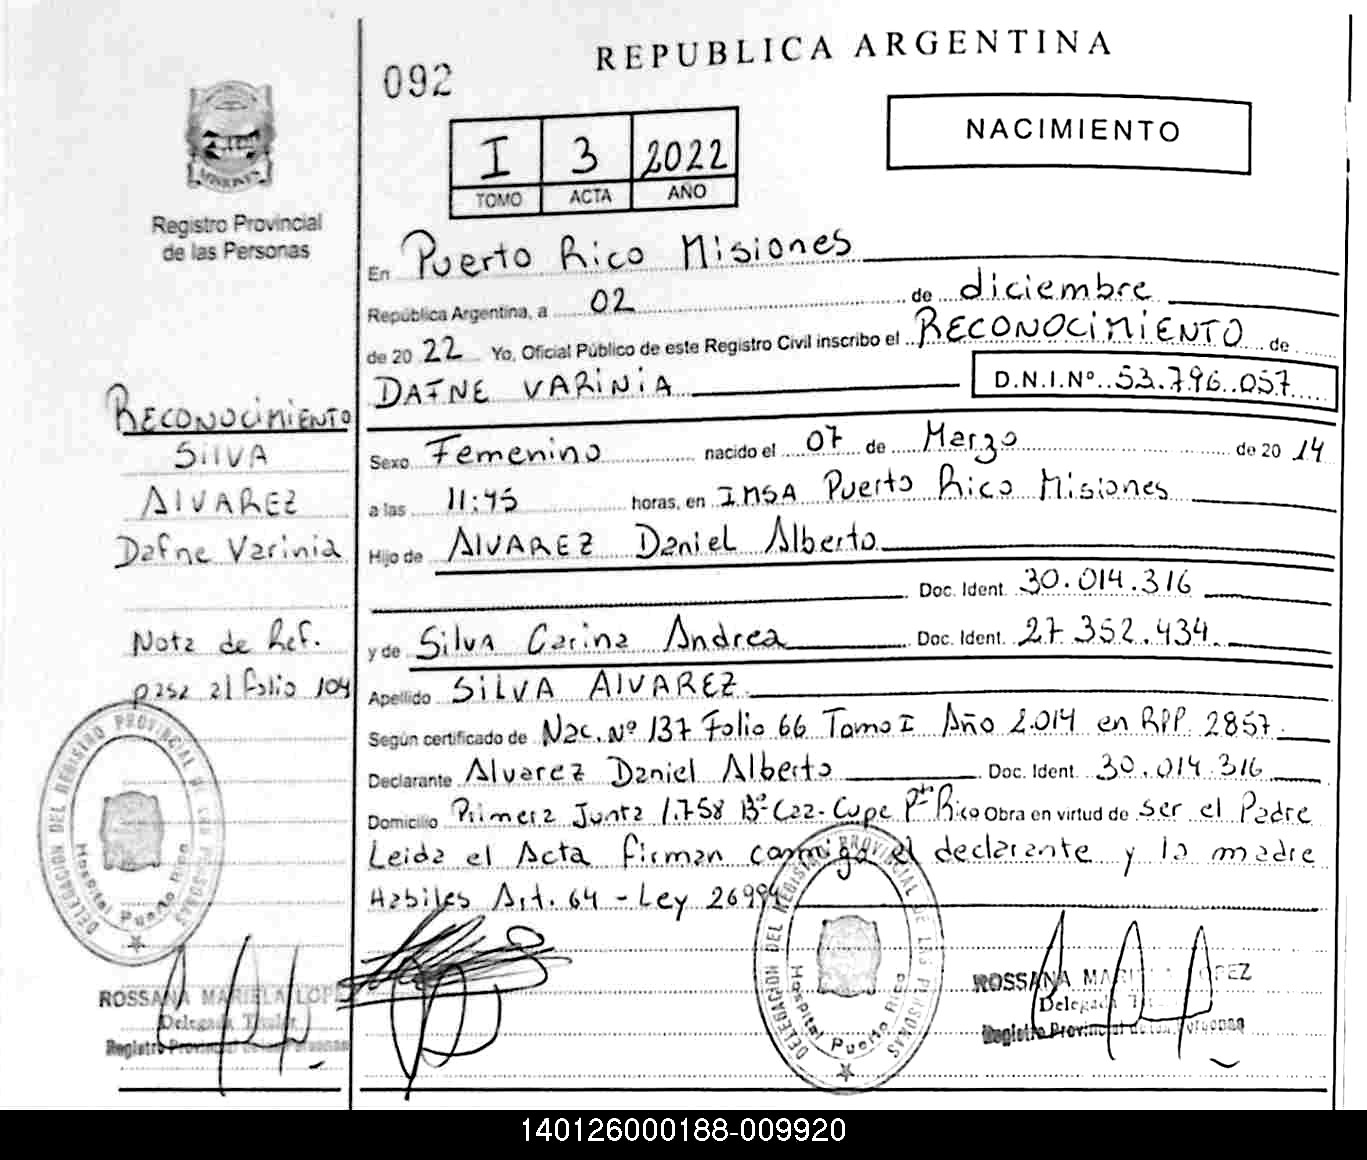 REPUBLICA ARGENTINA
092
NACIMIENTO
I 3 2022
TOMO ACTA AÑO
MISIONES
Registro Provincial
de las Personas
En Puerto Rico Misiones
República Argentina, a 02 de diciembre
de 20 22 Yo, Oficial Público de este Registro Civil inscribo el RECONOCIMIENTO de
DAFNE VARINIA D.N.I.Nº 53.796.057
Sexo Femenino nacido el 07 de Marzo de 20 14
a las 11:45 horas, en IMSA Puerto Rico Misiones
Hijo de AlVAREZ Daniel Alberto
Doc. Ident. 30.014.316
y de Silva Carina Andrea Doc. Ident. 27.352.434
Apellido SILVA AlVAREZ
Según certificado de Nac. Nº 137 Folio 66 Tomo I Año 2.014 en RPP. 2857
Declarante Alvarez Daniel Alberto Doc. Ident. 30.014.316
Domicilio Primera Junta 1.758 Bº Caa-Cupe Pto Rico Obra en virtud de ser el Padre
Leida el Acta firman conmigo el declarante y la madre
Habiles Art. 64 - Ley 26994
RECONOCIMIENTO
SILVA
AlVAREZ
Dafne Varinia
Nota de Ref.
pasa al folio 104
DELEGACION DEL REGISTRO PROVINCIAL DE LAS PERSONAS
Hospital Puerto Rico
ROSSANA MARIELA LOPEZ
Delegada Titular
Registro Provincial de las Personas
DELEGACION DEL REGISTRO PROVINCIAL DE LAS PERSONAS
Hospital Puerto Rico
ROSSANA MARIELA LOPEZ
Delegada Titular
Registro Provincial de las Personas
140126000188-009920